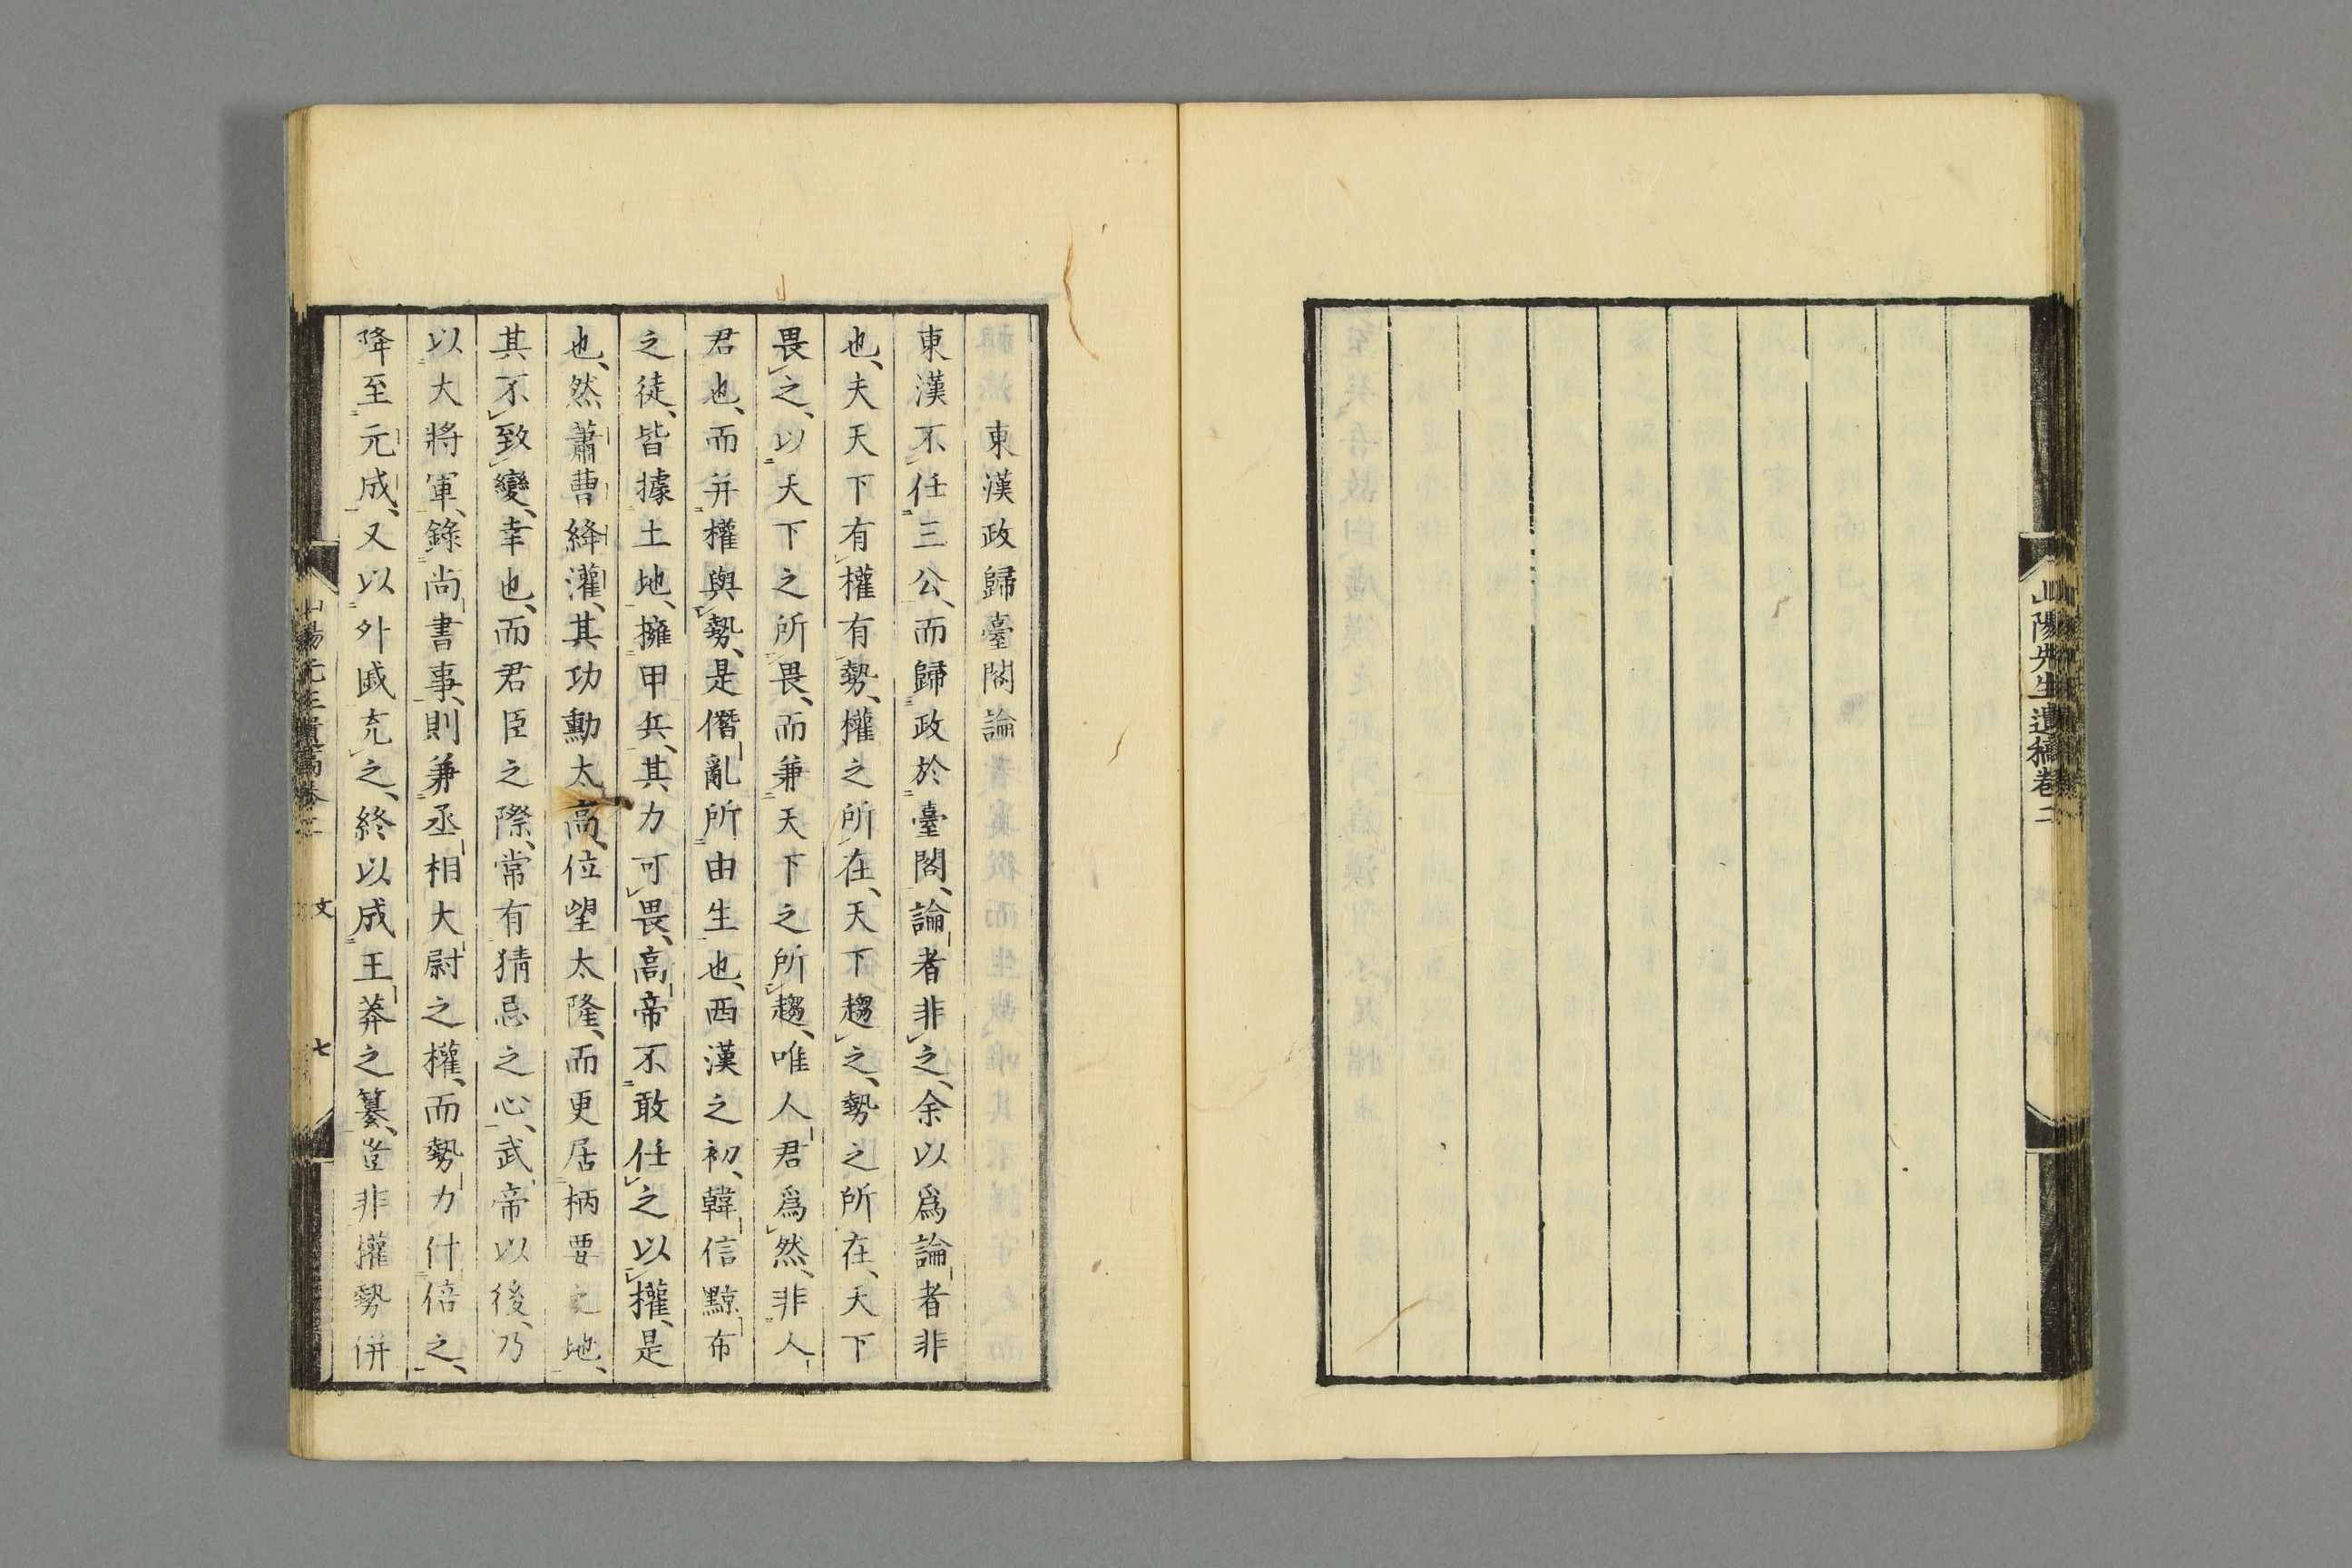 山陽先生遺稿卷二
東漢政歸臺閣論
東漢不任三公、而歸政於臺閣、論者非之、余以爲論者非
也、夫天下有權有勢、權之所在、天下趨之、勢之所在、天下
畏之、以天下之所畏、而兼天下之所趨、唯人君爲然、非人
君也、而并權與勢、是僭亂所由生也、西漢之初、韓信黥布
之徒、皆據土地、擁甲兵、其力可畏、高帝不敢任之以權、是
也、然蕭曹絳灌、其功勳太高、位望太隆、而更居柄要之地、
其不致變、幸也、而君臣之際、常有猜忌之心、武帝以後、乃
以大將軍、錄尚書事、則兼丞相大尉之權、而勢力什倍之、
降至元成、又以外戚充之、終以成王莽之簒、豈非權勢併
山陽先生遺稿卷二 文 七